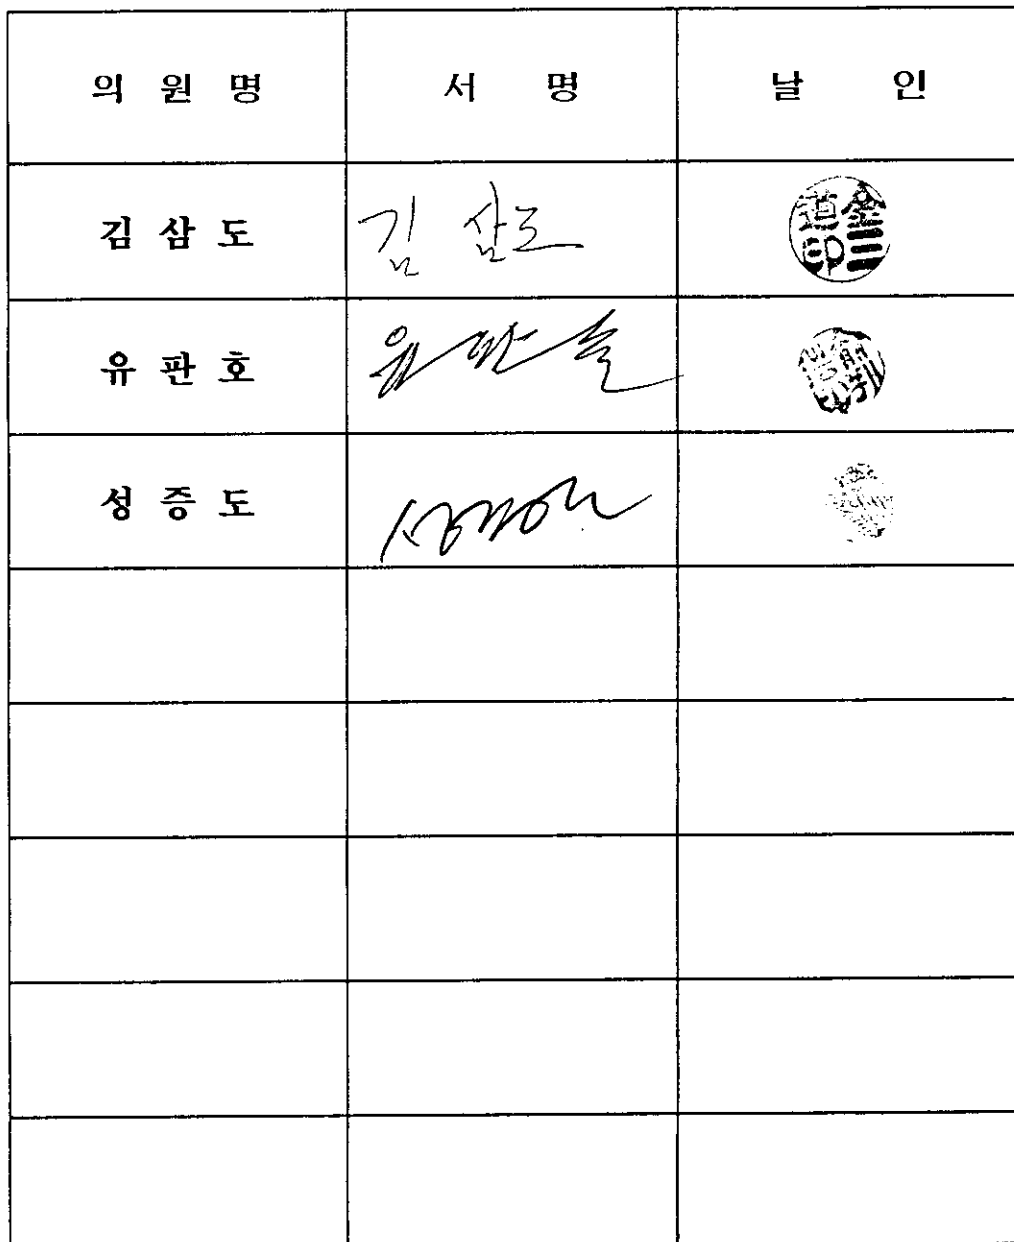 의 원 명 서 명 날 인
김 삼 도 김 삼도 金三道印
유 판 호 유판호
성 증 도